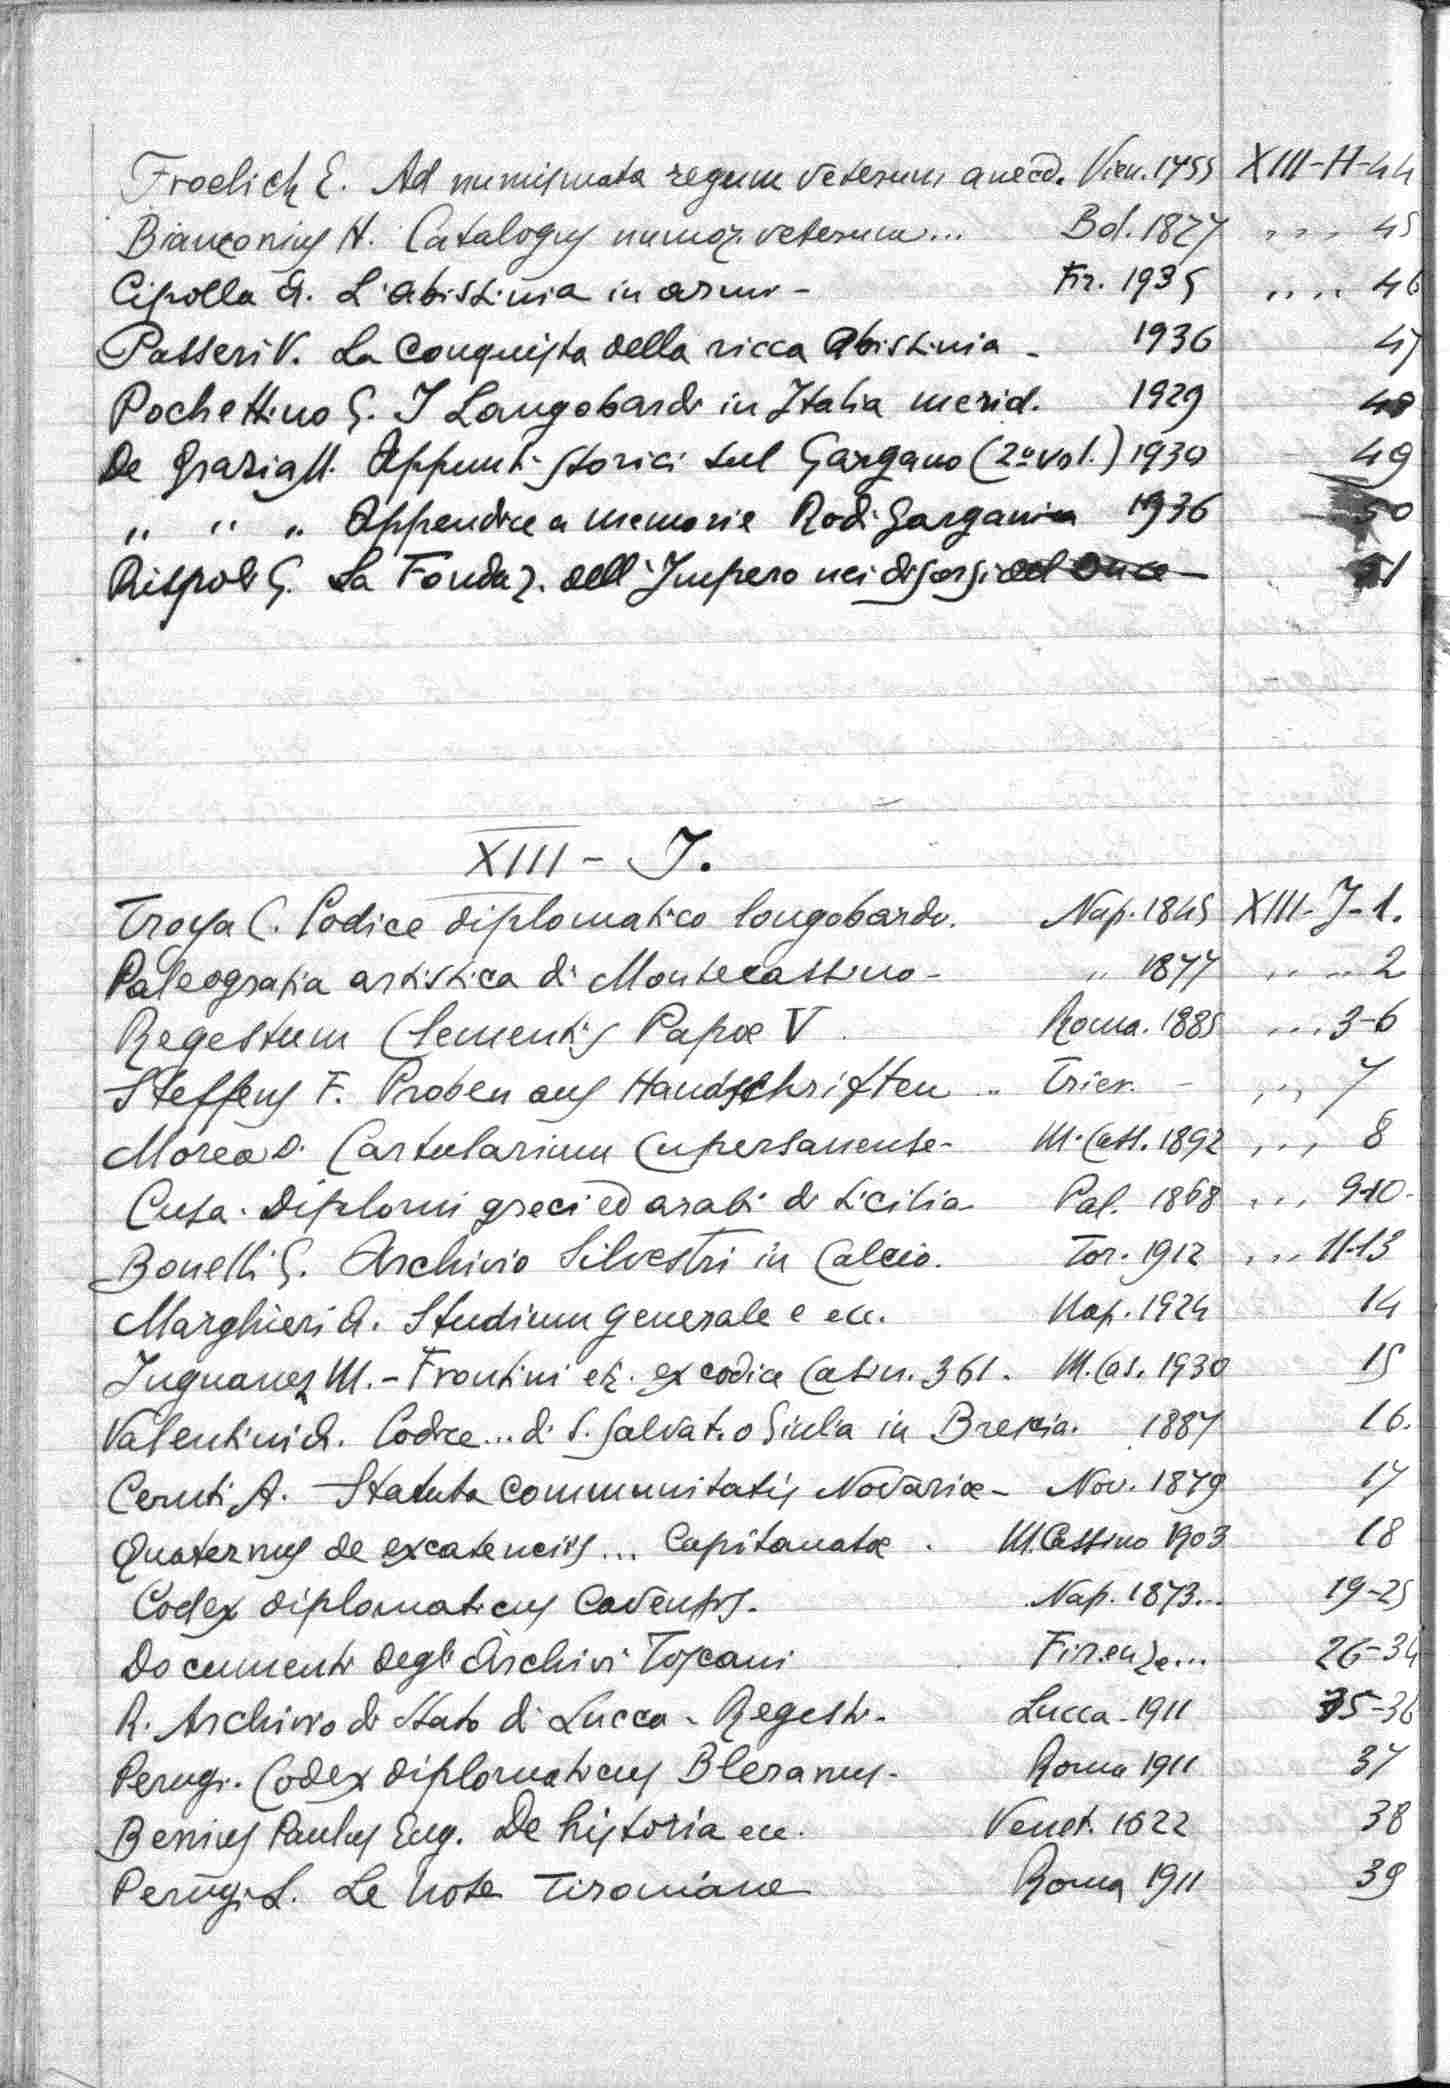 Froelich E. Ad numismata regum veterum anecd. Vien. 1755 XIII-H-44
Bianconius H. Catalogus numor. veterum... Bol. 1827 " " " 45
Cipolla A. L'Abissinia in armi - Fir. 1935 " " " 46
Passeri V. La conquista della ricca Abissinia - 1936 47
Pochettino G. I Langobardi in Italia merid. 1929 48
De Grazia M. Appunti storici sul Gargano (2º vol.) 1930 49
" " " Appendice a memorie Rodi Garganica 1936 50
Rispoli G. La Fondaz. dell'Impero nei disgorsi del Duce - 51
XIII - J.
Troya C. Codice diplomatico longobardo. Nap. 1845 XIII-J-1.
Paleografia artistica di Montecassino - " 1877 " " " 2
Regestum Clementis Papæ V. Roma. 1885 " " " 3-6
Steffens F. Proben aus Handschriften .. Trier. - " " 7
Morea D. Cartularium Cupersanense - M. Cass. 1892 " " " 8
Cusa. Diplomi greci ed arabi di Sicilia - Pal. 1868 " " " 9-10.
Bonelli G. Archivio Silvestri in Calcio. Tor. 1912 " " " 11-13
Marghieri A. Studium generale e ecc. Nap. 1924 14
Inguanez M. - Frontini etc. ex codice Casin. 361. M. Cas. 1930 15
Valentini A. Codice... di S. Salvat. o Giulia in Brescia. 1887 16.
Ceruti A. Statuta communitatis Novariæ - Nov. 1879 17
Quaternus de excatenciis... Capitanatæ. M. Cassino 1903 18
Codex diplomaticus Cavensis. Nap. 1873... 19-25
Documenti degli Archivi Toscani Firenze... 26-34
R. Archivio di Stato di Lucca - Regesti - Lucca - 1911 35-36
Perugi. Codex diplomaticus Bleranus - Roma 1911 37
Benius Paulus Eug. De historia ecc. Venet. 1622 38
Perugi L. Le Note Tironiane Roma 1911 39